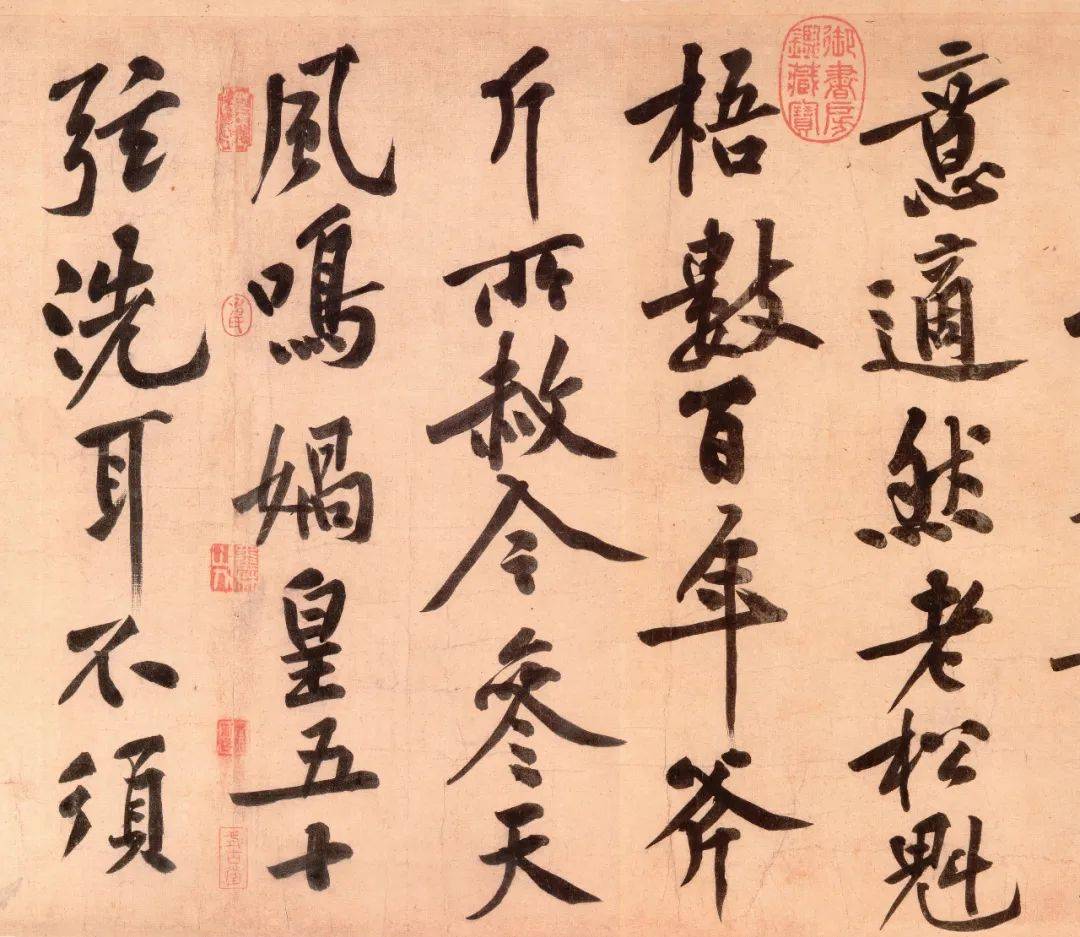 意適然老松魁
梧數百年斧
斤所赦令參天
風鳴媧皇五十
弦洗耳不須
御書房鑑藏寶